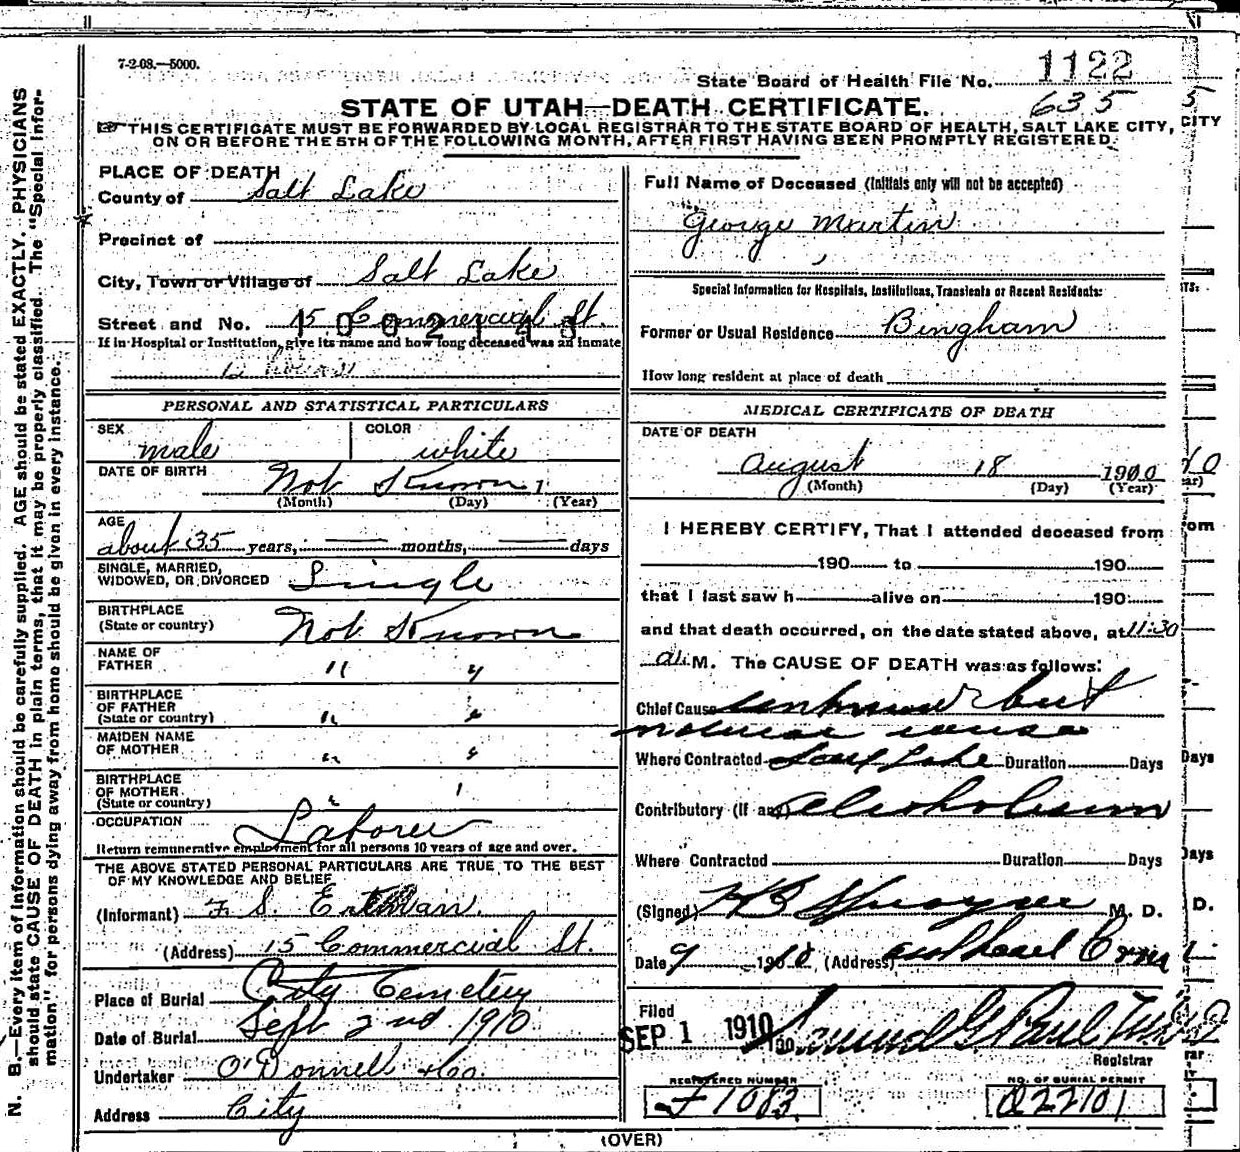 7-2-08.—5000.
State Board of Health File No. 1122
635
STATE OF UTAH—DEATH CERTIFICATE.
THIS CERTIFICATE MUST BE FORWARDED BY LOCAL REGISTRAR TO THE STATE BOARD OF HEALTH, SALT LAKE CITY,
ON OR BEFORE THE 5TH OF THE FOLLOWING MONTH, AFTER FIRST HAVING BEEN PROMPTLY REGISTERED.
N. B.—Every item of information should be carefully supplied. AGE should be stated EXACTLY. PHYSICIANS
should state CAUSE OF DEATH in plain terms, that it may be properly classified. The "Special Infor-
mation" for persons dying away from home should be given in every instance.
PLACE OF DEATH
County of Salt Lake
Precinct of
City, Town or Village of Salt Lake
Street and No. 15 Commercial St.
1002143
If in Hospital or Institution, give its name and how long deceased was an inmate
12 hours
PERSONAL AND STATISTICAL PARTICULARS
SEX male COLOR white
DATE OF BIRTH Not Known 1
(Month) (Day) (Year)
AGE
about 35 years, months, days
SINGLE, MARRIED,
WIDOWED, OR DIVORCED Single
BIRTHPLACE
(State or country) Not Known
NAME OF
FATHER " "
BIRTHPLACE
OF FATHER
(State or country) " "
MAIDEN NAME
OF MOTHER " "
BIRTHPLACE
OF MOTHER
(State or country) " "
OCCUPATION Laborer
Return remunerative employment for all persons 10 years of age and over.
THE ABOVE STATED PERSONAL PARTICULARS ARE TRUE TO THE BEST
OF MY KNOWLEDGE AND BELIEF
(Informant) F. S.
(Address) 15 Commercial St.
Place of Burial City Cemetery
Date of Burial Sept 2nd 1910
Undertaker O'Donnell & Co.
Address City
Full Name of Deceased (Initials only will not be accepted)
George Martin
Special Information for Hospitals, Institutions, Transients or Recent Residents:
Former or Usual Residence Bingham
How long resident at place of death
MEDICAL CERTIFICATE OF DEATH
DATE OF DEATH
August 18 1910
(Month) (Day) (Year)
I HEREBY CERTIFY, That I attended deceased from
190 to 190
that I last saw h alive on 190
and that death occurred, on the date stated above, at 11:30
a. M. The CAUSE OF DEATH was as follows:
Chief Cause unknown but
natural cause
Where Contracted Salt Lake Duration Days
Contributory (If any) alcoholism
Where Contracted Duration Days
(Signed) M. D.
Date 9 1910 (Address)
Filed
SEP 1 1910 Samuel G Paul
Registrar
REGISTERED NUMBER
F 1083
NO. OF BURIAL PERMIT
A22101
(OVER)